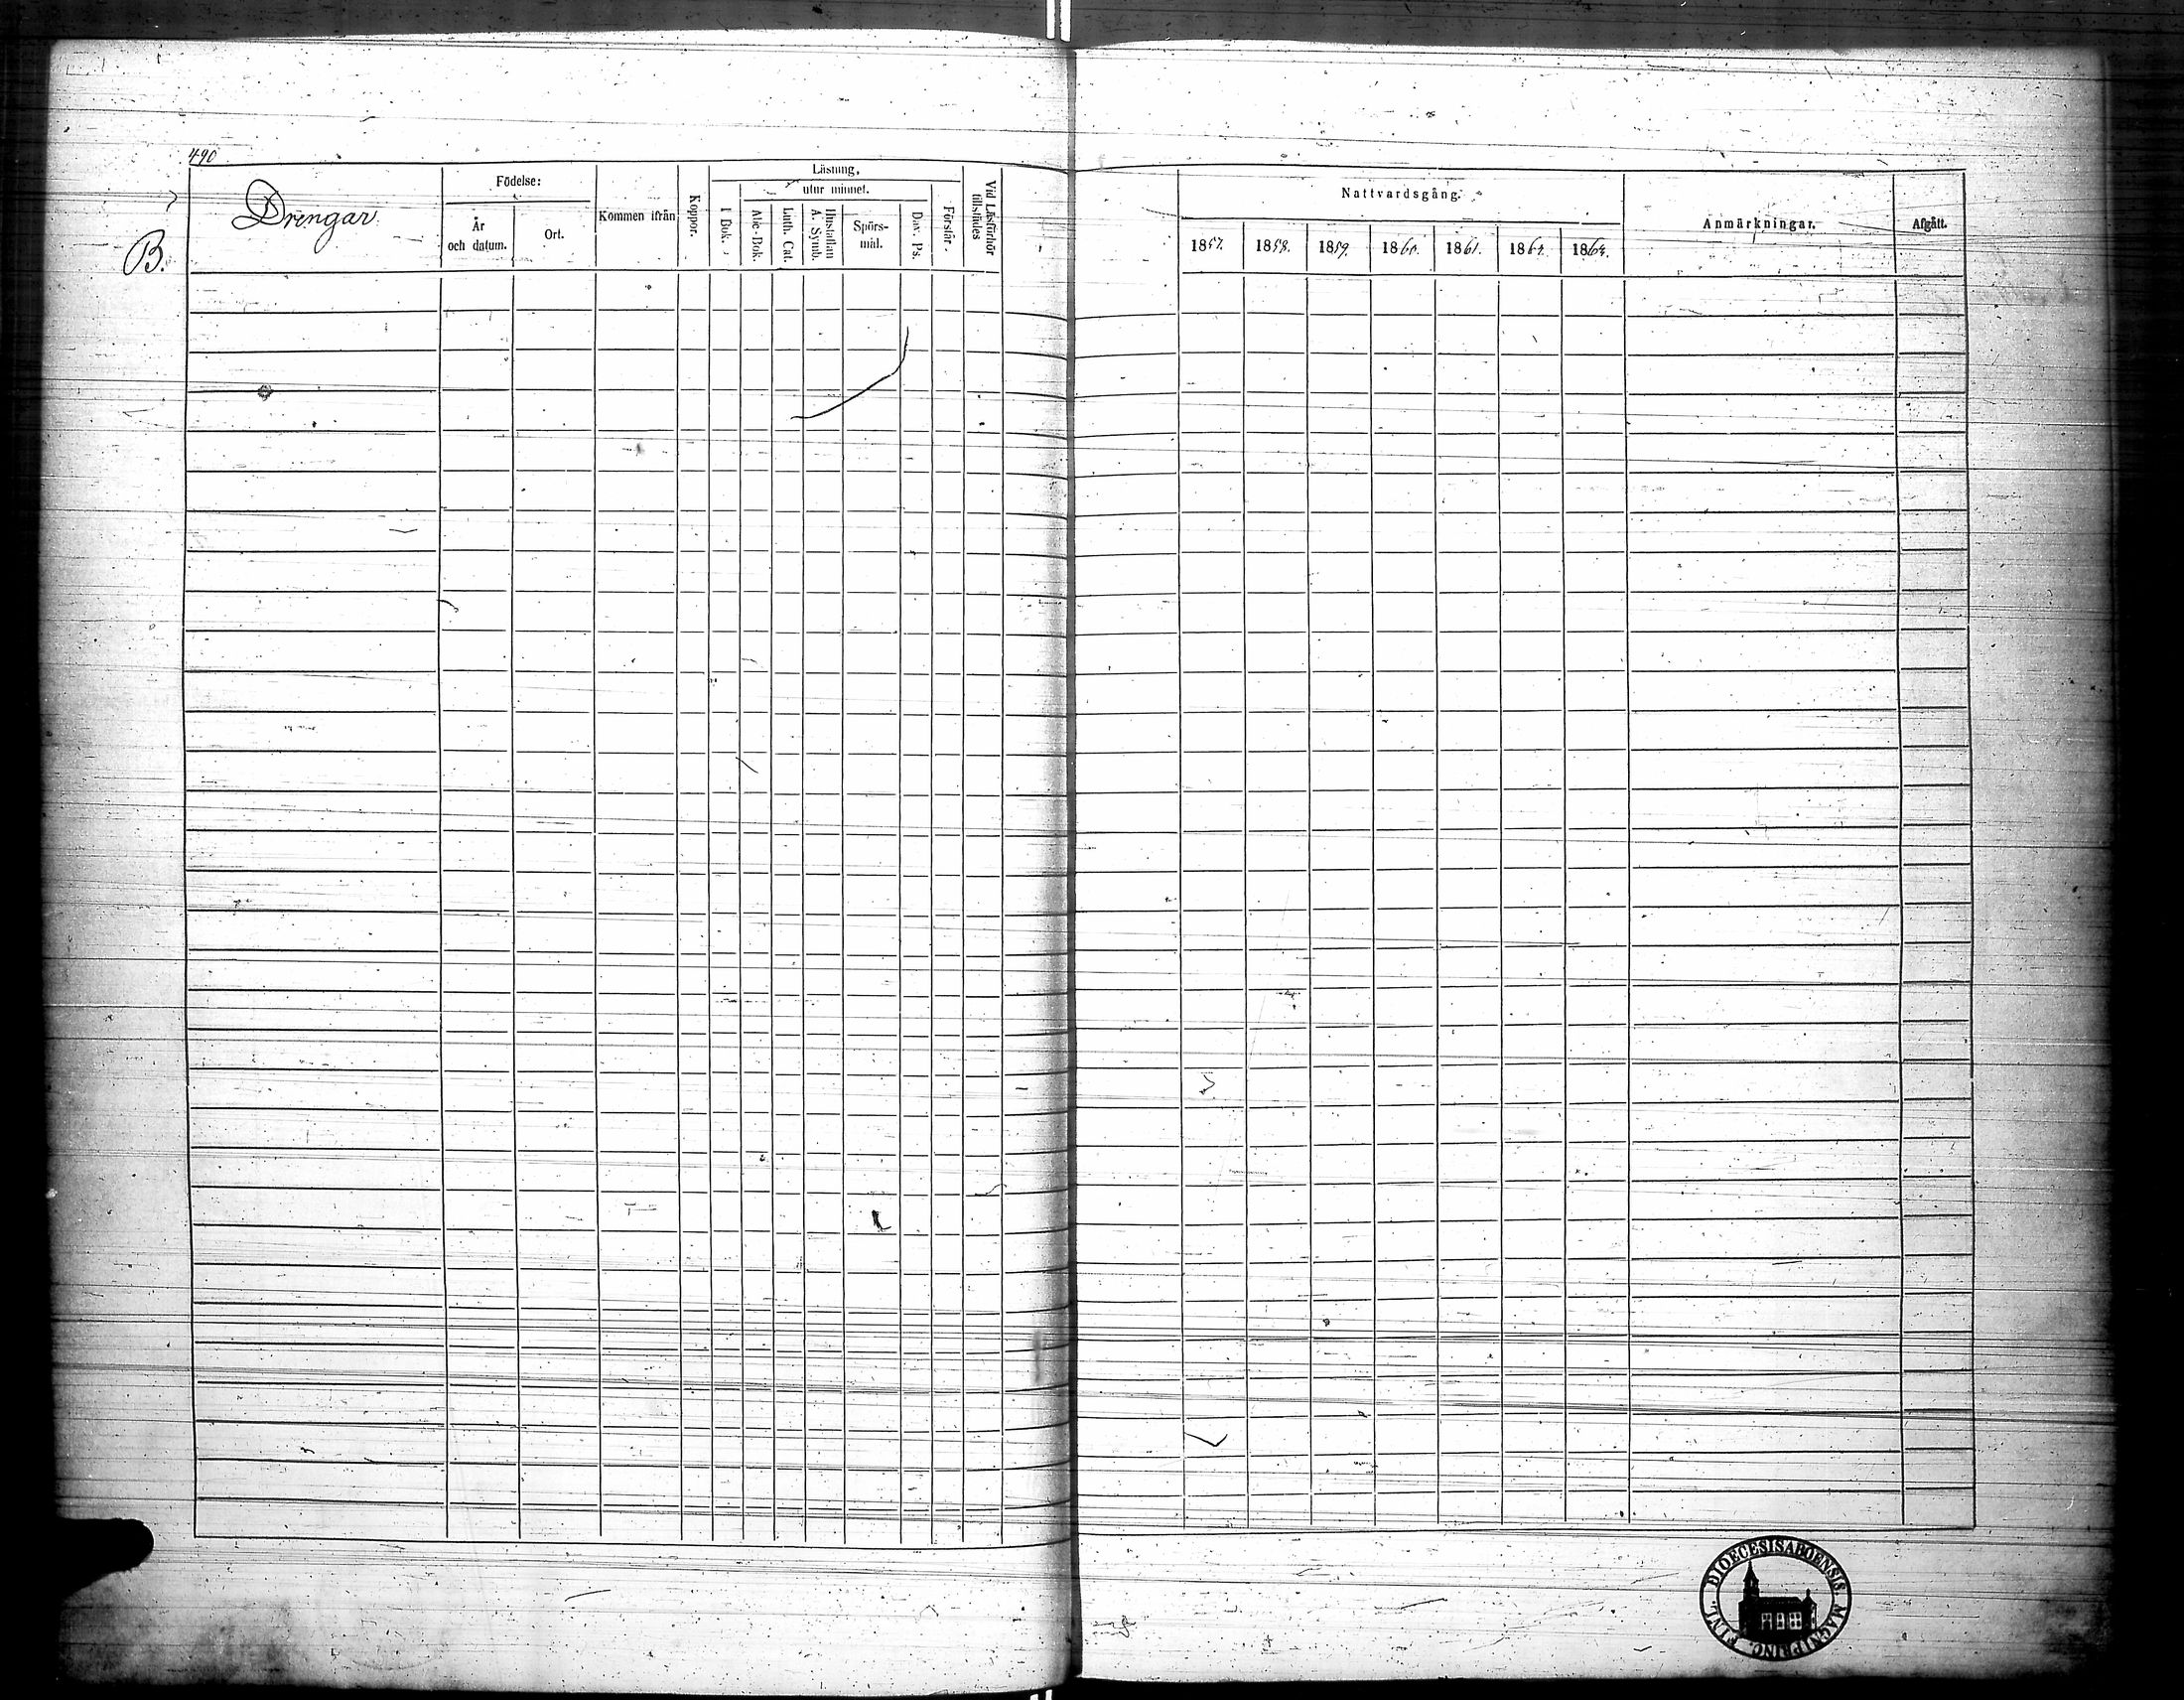 490
Drengar
B.
Födelse:
År
och datum.
Ort.
Kommen ifrån
Koppor.
Läsning,
I Bok.
utur minnet.
Abc-Bok.
Luth. Cat.
Hustaflan
A. Symb.
Spörs-
mål.
Dav. Ps.
Förstår.
Vid Läsförhör
tillstädes
Nattvardsgång.
1857. 1858. 1859. 1860. 1861.
Anmärkningar.
Afgått.
DIOECESIS ABOENSIS. MAGNI PRINC. FINL.